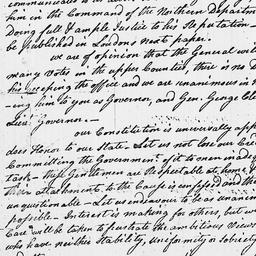 him in the Command of the Northern Departm
doing full & ample Justice to his Reputation
be published in Loudons next paper.
we are of opinion that the General will
many Votes in the upper Counties, there is no D
his accepting the office and we are unanimous in
-ing him to you as Governor, and Gen. George Cl
Lieu. Governor.—
our Constitution is universally app
does Honor to our State. Let us not lose our Cre
Committing the Government of it to men
task— these Gentlemen are Respectable at home,
their Attachment to the Cause is confessed and th
unquestionable— Let us endeavour to be as unani
possible— Interest is making for others, but we
Care will be taken to frustrate the ambitious Views
who have neither Stability, Uniformity or Sobriety